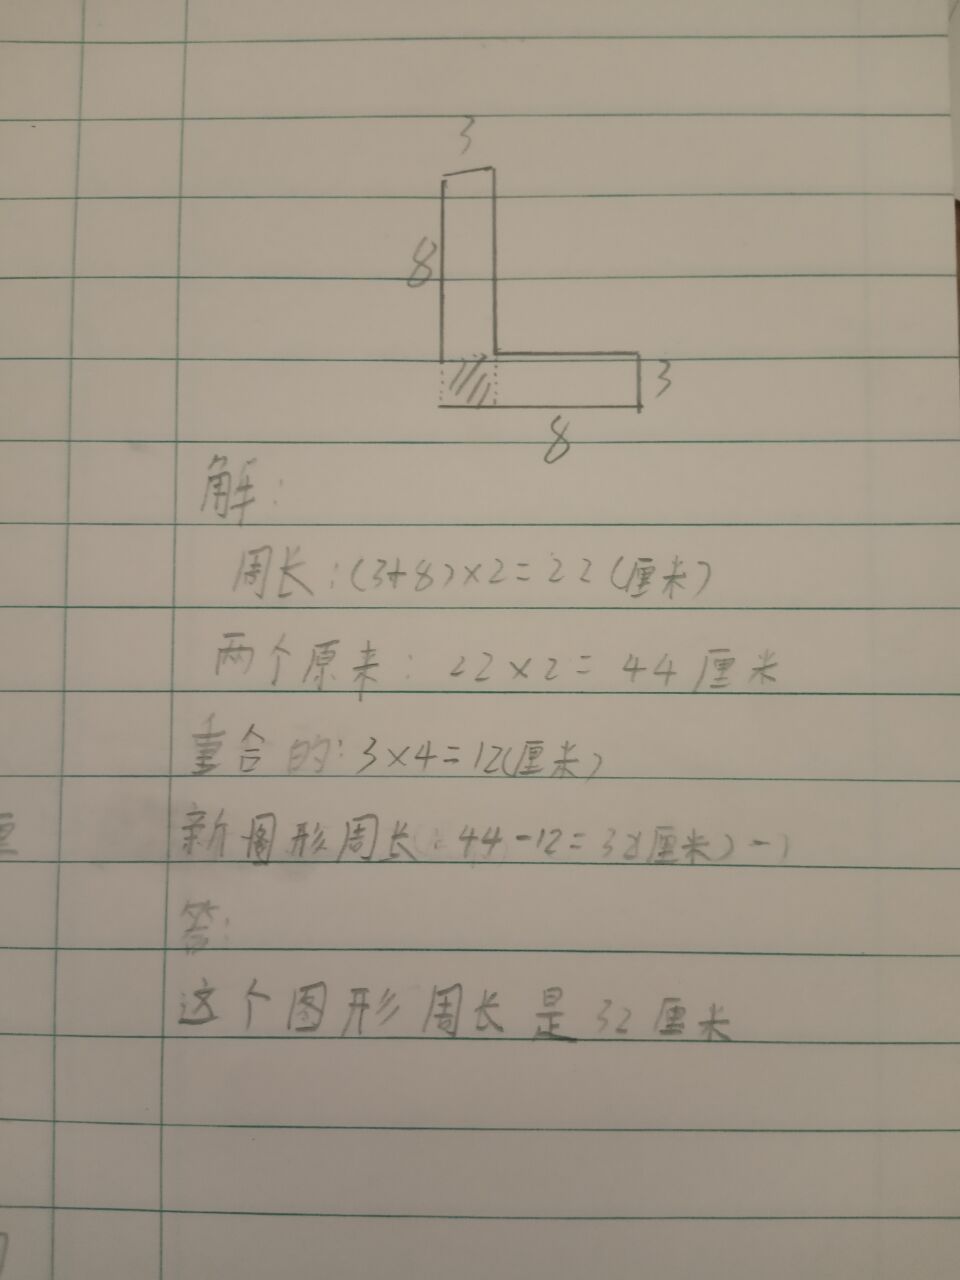 3
8
3
8
解:
周长:(3+8)×2=22(厘米)
两个原来: 22×2=44厘米
重合的:3×4=12(厘米)
新图形周长:44-12=32(厘米)
答:
这个图形周长是32厘米